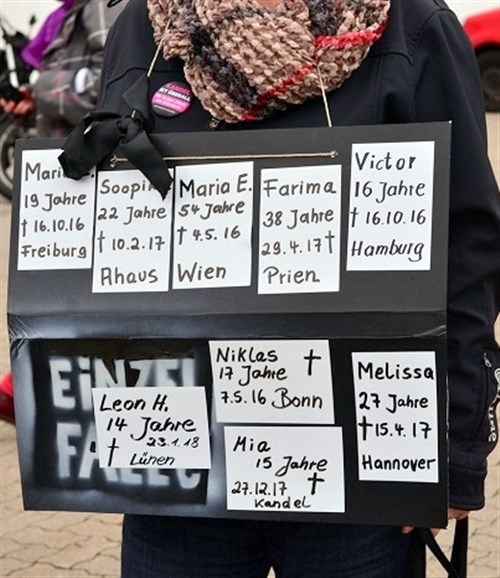 KANDEL
IST ÜBERALL
Maria
19 Jahre
† 16.10.16
Freiburg
Soopika
22 Jahre
† 10.2.17
Ahaus
Maria E.
54 Jahre
† 4.5.16
Wien
Farima
38 Jahre
29.4.17 †
Prien
Victor
16 Jahre
† 16.10.16
Hamburg
EiNZEL
FÄLLE
Leon H.
14 Jahre
† 23.1.18
Lünen
Niklas †
17 Jahre
7.5.16 Bonn
Mia
15 Jahre
27.12.17 †
Kandel
Melissa
27 Jahre
† 15.4.17
Hannover